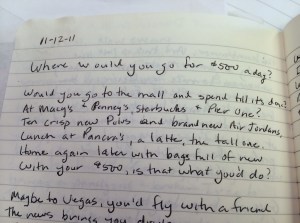 11-12-11
Where would you go for $500 a day?
Would you go to the mall and spend till its done?
At Macy's & Penney's, Starbucks & Pier One?
Ten crisp new Polos and brand new Air Jordans,
Lunch at Panera's, a latte, the tall one.
Home again later with bags full of new
With your $500, is that what you'd do?
Maybe to Vegas, you'd fly with a friend
The news brings you